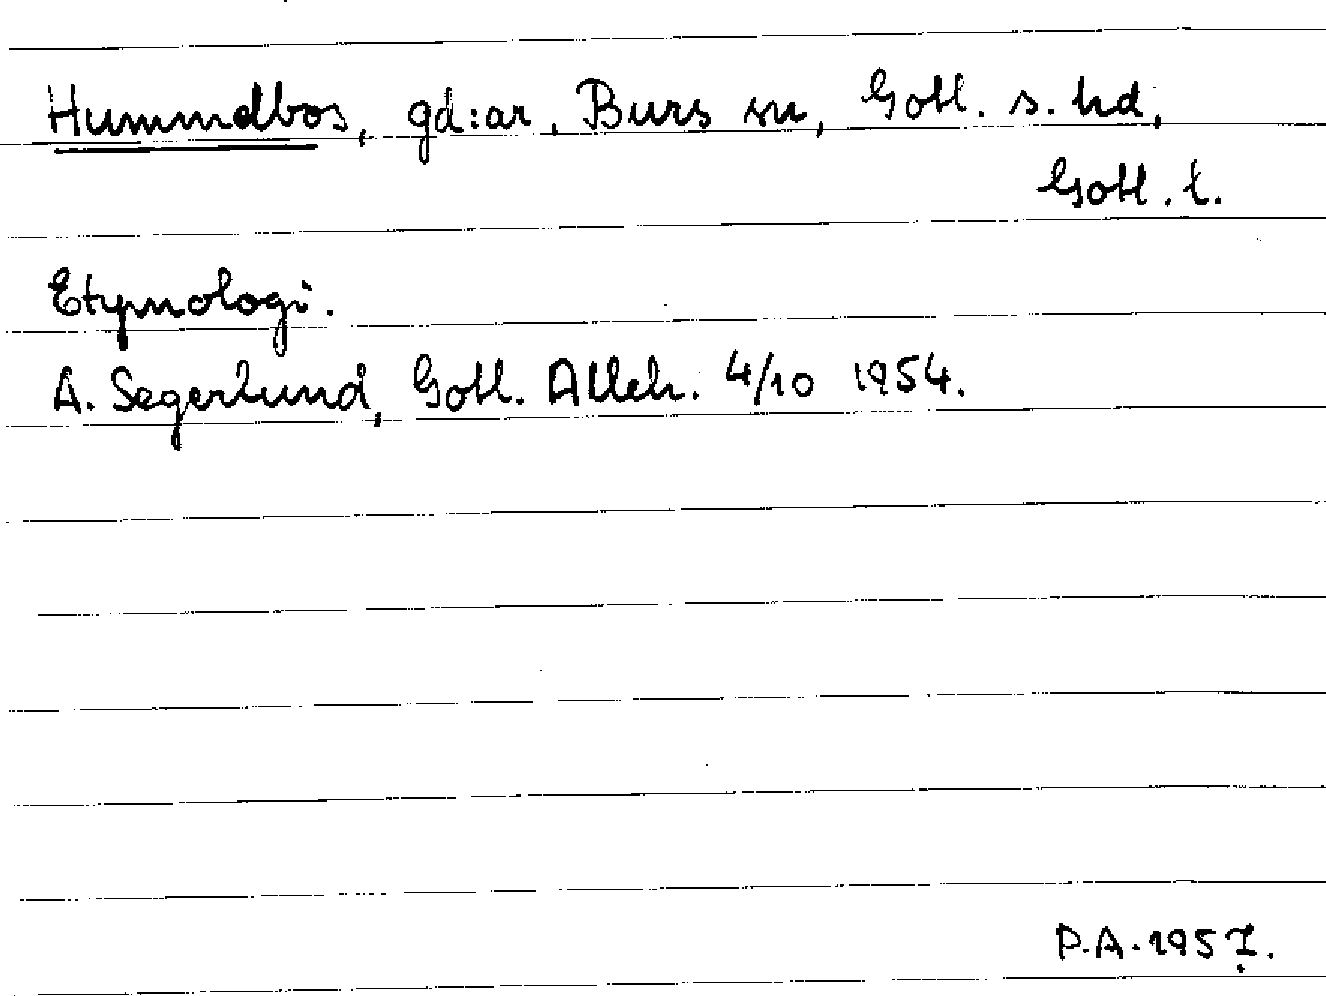 Hummdbos, gd:ar, Burs sn, Gotl. s. hd,
Gotl. l.
Etymologi.
A. Segerlund, Gotl. Alleh. 4/10 1954.
P.A. 1957.